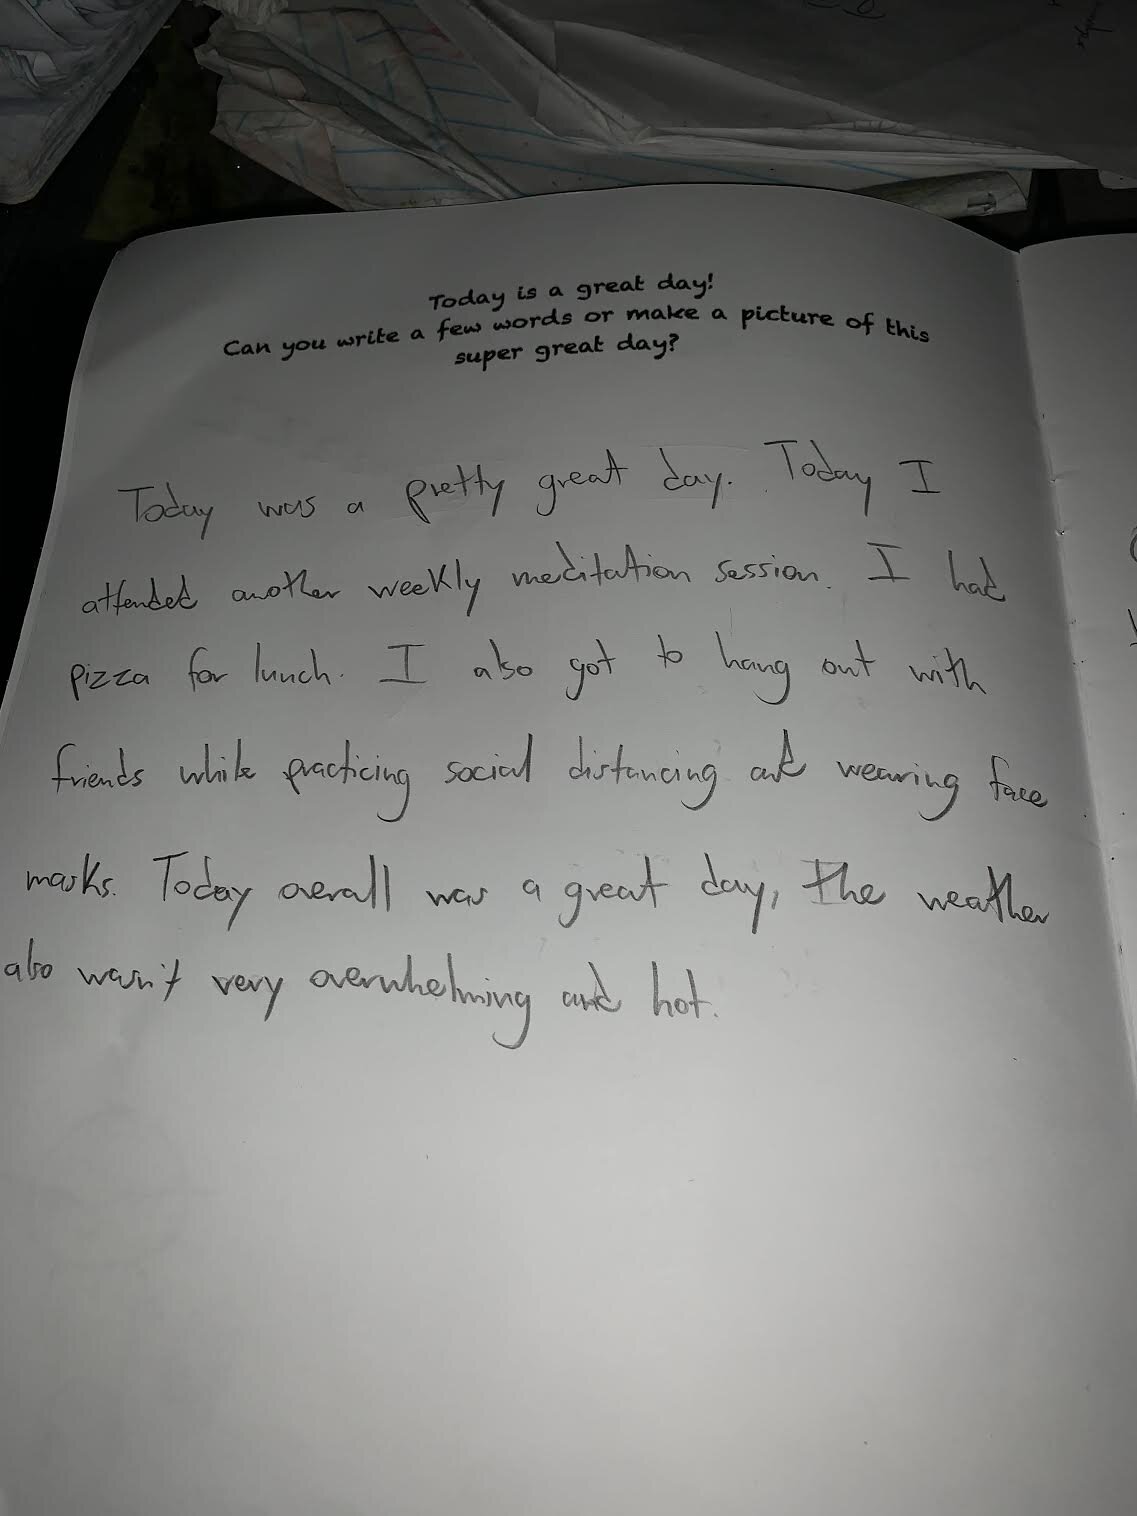 Today is a great day!
Can you write a few words or make a picture of this
super great day?
Today was a pretty great day. Today I
attended another weekly meditation session. I had
pizza for lunch. I also got to hang out with
friends while practicing social distancing and wearing face
masks. Today overall was a great day, The weather
also wasn't very overwhelming and hot.